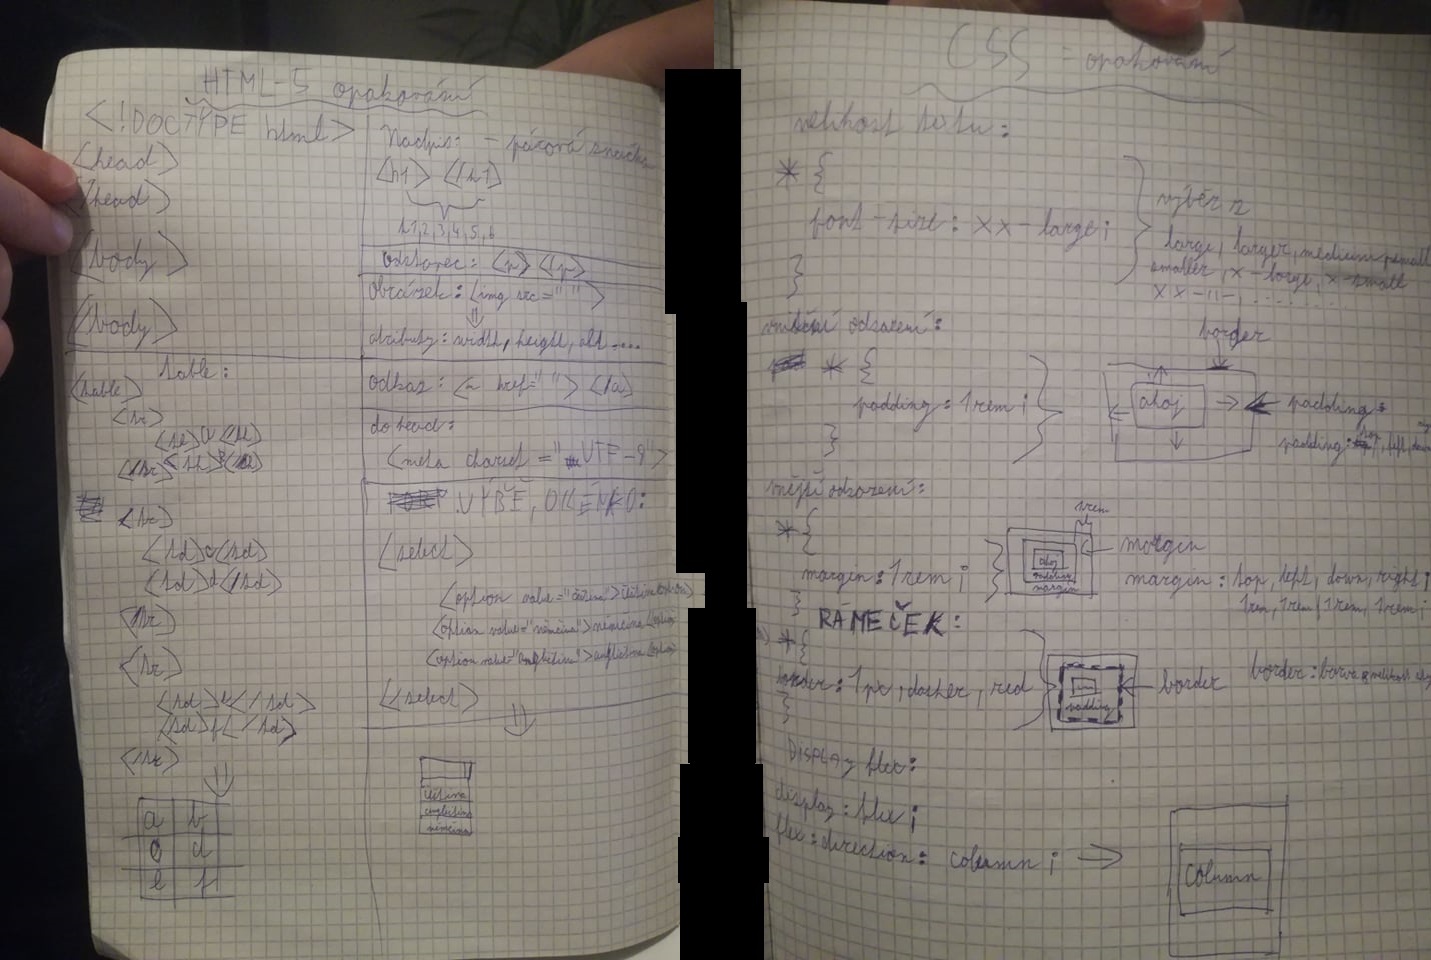 HTML-5 opakování
<!DOCTYPE html>
<head>
</head>
<body>
</body>
table:
<table>
<tr>
<th>a</th>
<th>B</th>
</tr>
<tr>
<td>c</td>
<td>d</td>
</tr>
<tr>
<td>e</td>
<td>f</td>
</tr>
a b
c d
e f
Nadpis: - párová značka
<h1> </h1>
h1,2,3,4,5,6
odstavec: <p> </p>
obrázek: <img src=" ">
atributy: width, height, alt ....
odkaz: <a href=" "> </a>
do head:
<meta charset="UTF-8">
VÝBĚ, OKÉNKO:
<select>
<option value="čeština">čeština
<option value="němčina">němčina</option
<option value="angličtina">angličtina</option
</select>
čeština
angličtina
němčina
CSS - opakování
velikost textu:
* {
font-size: xx-large;
}
výběr z
large, larger, medium, small
smaller, x-large, x-small
xx-11-, ........
vnitřní odsazení:
* {
padding: 1rem;
}
border
ahoj
padding
padding: left,
vnější odsazení:
* {
margin: 1rem;
}
1rem
ahoj
padding
margin
margin
margin: top, left, down, right;
1rem, 1rem, 1rem, 1rem;
RÁMEČEK:
* {
border: 1px, dasher, red
}
padding
border
border: barva a velikost
DISPLAY flex:
display: flex;
flex:direction: column;
column